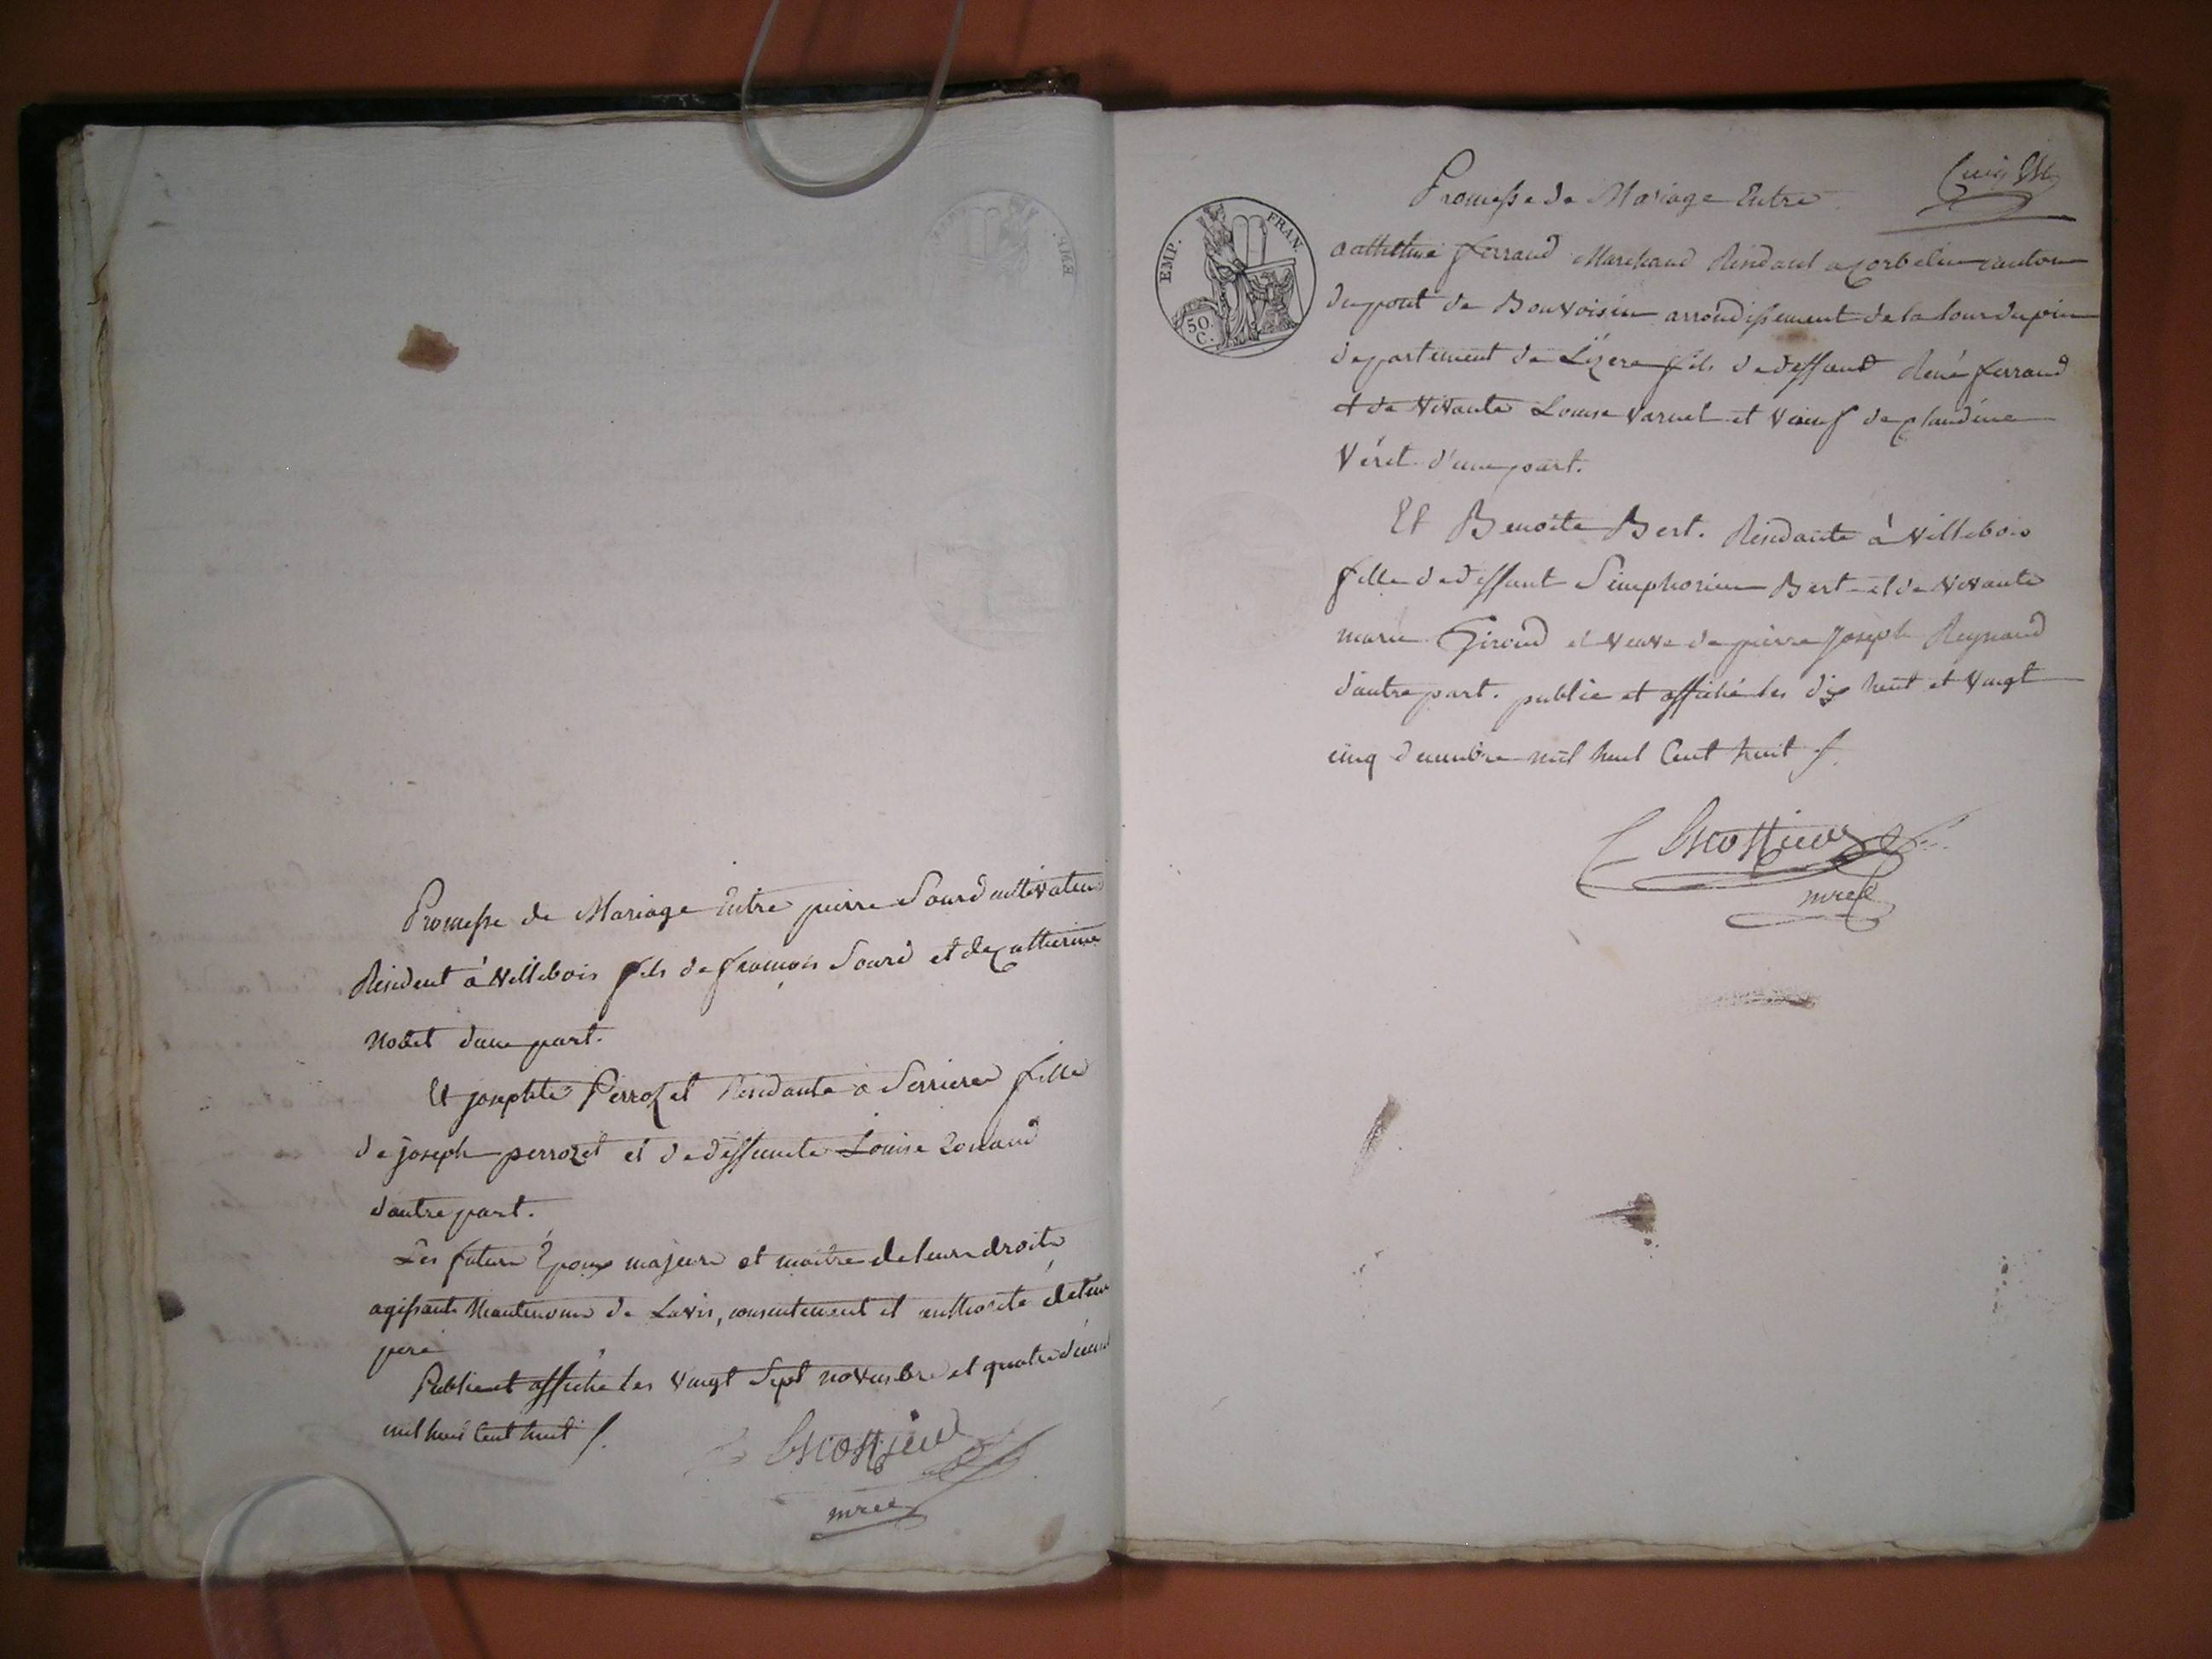 Promesse de Mariage Entre pierre Sourd cultivateur
Résident à Villebois fils de françois Sourd et de Catherine
Nodet d'une part.
Et josephte Perrozet Résidante à Serrieres fille
de joseph perrozet et de deffuncte Louise
d'autre part.
Les futurs Epoux majeurs et maitre de leurs droits
agissants neantmoins de Lavis, consentement et authorité de leur
pere
Publié et affiché les vingt Sept novembre et quatre décemb
mil huit Cent huit /.
mre
EMP. FRAN.
50.
C.
Promesse de Mariage Entre
ferrand Marchand Résidant a Corbelin canton
du pont de Bonvoisin arrondissement de la tour du pin
departement de L'izere fils de deffunt René ferrand
et de vivante Louise Varnet et veuf de Claudine
Véret d'une part.
Et Benoite Bert. Résidante à Villebois
fille de deffunt Simphorien Bert et de vivante
marie Giroud et veuve de pierre Joseph Reynaud
d'autre part. publié et affiché les dix huit et vingt
cinq decembre mil huit Cent huit /.
mre